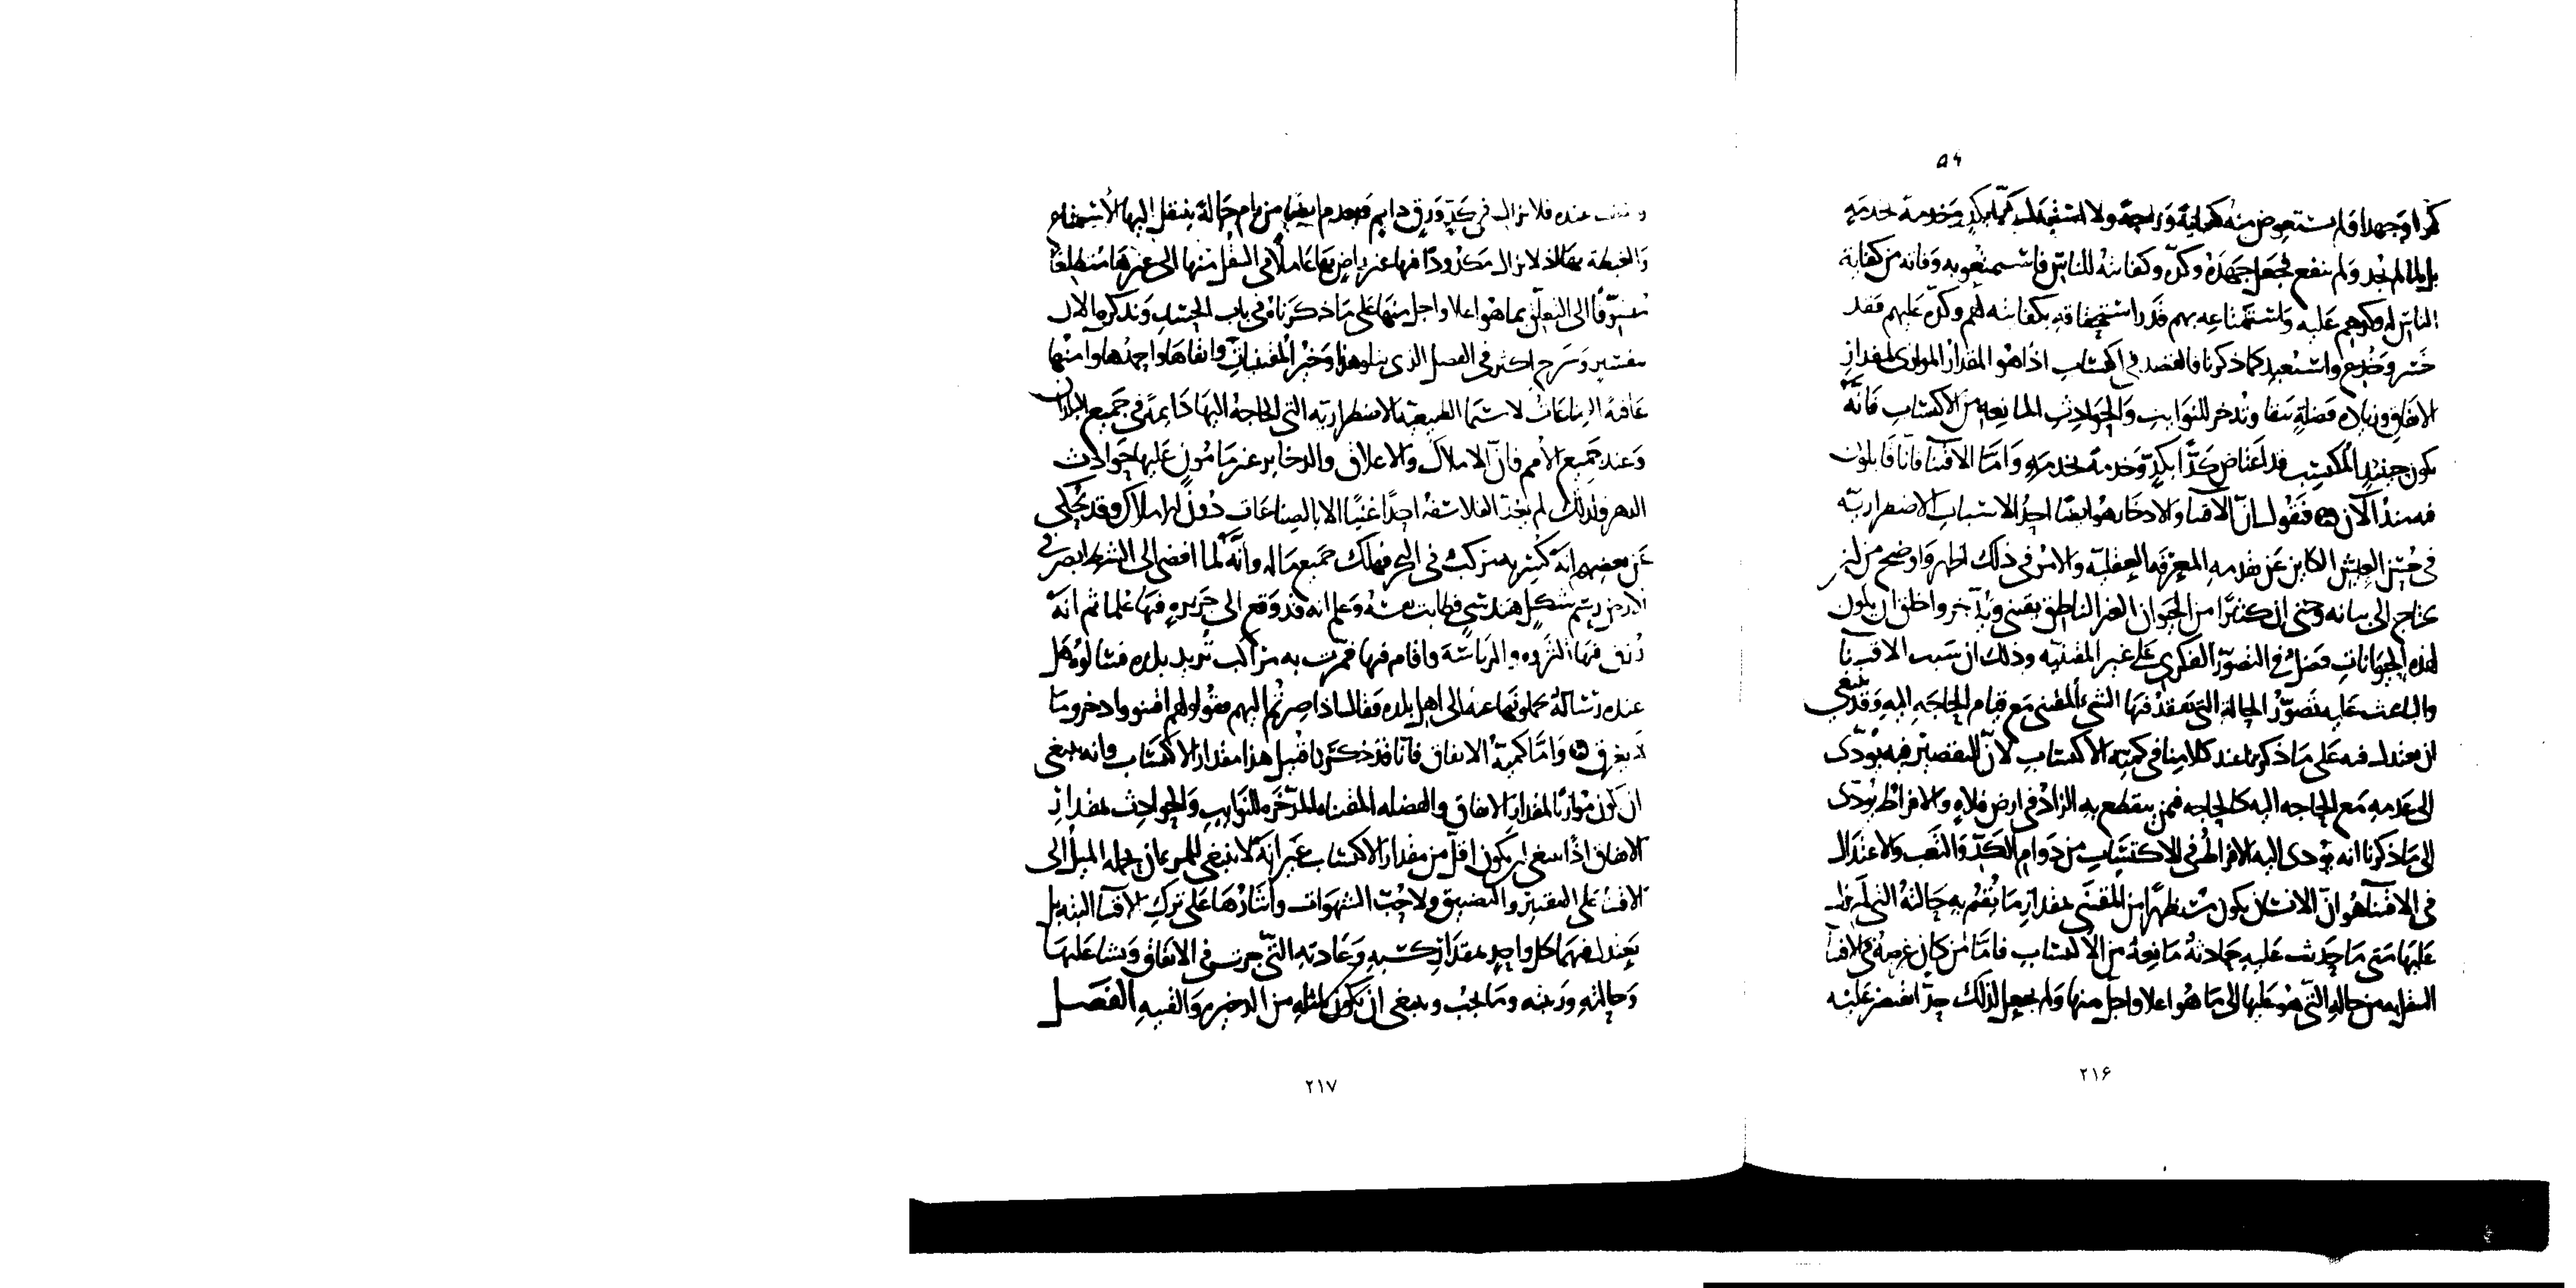 ٥٤
كدا وجهدا ولم يستعوض منه كفاية وراحة ولا استفيدك كدا بكد وخدمة بخدمة
بل لما لم يجد ولم ينفع بجعل جهده وكده وكفايته للناس فاستمتعوا به وفاته من كفاية
الناس له وكدهم عليه واستمتاعه بهم قدر استحقاقه بكفايته لهم وكده عليهم فقد
خسر وخدع واستعبد كما ذكرنا فالقصد في اكتساب اذا هو المقدار الموازى لمقدار
الانفاق وزيادة فضلة تقتنا وتدخر للنوايب والحوادث المانعة من الاكتساب فانه
يكون حينئذ المكتسب قد اعتاض كدا بكد وخدمة بخدمة واما الاقتنا فانا قايلون
فيه منذ الآن فنقول ان الاقتنا والادخار هو ايضا احد الاسباب الاضطرارية
في حسن العيش الكاين عن تقدمه المعرفة العقلية والامر في ذلك اظهر واوضح من ان
يحتاج الى بيانه وحتى ان كثيرا من الحيوان الغير الناطق يقتنى ويدخر واخلق ان يكون
لهذه الحيوانات فضل في التصور الفكرى على غير المقتنية وذلك ان سبب الاقتنا
والباعث عليه تصور الحالة التى يفقد فيها الشىء المقتنى مع قيام الحاجة اليه وقد ينبغى
ان يعتدل فيه على ما ذكرنا عند كلامنا في كمية الاكتساب لان التقصير فيه يؤدى
الى عدمه مع الحاجه اليه كالحاجه فيمن ينقطع به الزاد في ارض فلاة والافراط يؤدى
الى ما ذكرنا انه يؤدى اليه الافراط في الاكتساب من دوام الكد والتعب والاعتدال
في الاقتنا هو ان الانسان يكون مستظهرا من المقتنى بمقدار ما يقيم به حالته التى لم يزل
عليها متى ما حدثت عليه حادثة مانعة من الاكتساب فاما من كان غرضه في الاقتنا
التنقل به من حاله التى هو عليها الى ما هو اعلا واجل منها ولم يجعل لذلك حدا يقتصر عليه
٢١٦
ويقف عنده فلا يزال في كد ورق دايم ويعدم ايضا من ايام حالة ينتقل اليها الاستمتاع
والغبطة بها اذ لا يزال مكدودا فيها غير راض بها عاملا في التنقل منها الى غيرها متطلعا
متشوقا الى التعلق بما هو اعلا واجل منها على ما ذكرناه في باب الحسد ونذكره الان
بتفسير وشرح اكثر في الفصل الذى يتلو هذا وخير المقتنيات وابقاها واحمدها وامنها
عاقبة الصناعات لا سيما الطبيعية الاضطرارية التى الحاجة اليها دايمة في جميع البلدان
وعند جميع الامم فان الاملاك والاعلاق والذخاير غير مامون عليها حوادث
الدهر ولذلك لم يعد الفلاسفة احدا غنيا الا بالصناعات دون الاملاك وقد يحكى
عن بعضهم انه كسر به مركب في البحر فهلك جميع ماله وانه لما افضى الى الشط ابصر في
الارض رسم شكل هندسى فطابت نفسه وعلم انه قد وقع الى جزيرة فيها علما ثم انه
رزق فيها الثروة والرياسة واقام فيها فمرت به مراكب تريد بلده فسالوه هل
عنده رسالة يحملونها عنه الى اهل بلده فقال اذا صرتم اليهم فقولوا لهم اقتنوا وادخروا ما
لا يغرق واما كمية الانفاق فانا قد ذكرنا قبيل هذا مقدار الاكتساب وانه ينبغى
ان يكون موازيا لمقدار الانفاق والفضله المقتناه المدخره للنوايب والحوادث فمقدار
الانفاق اذا ينبغى ان يكون اقل من مقدار الاكتساب غير انه لا ينبغى للمرء ان يحمله الميل الى
الاقتنا على التقتير والتضييق ولا حب الشهوات وايثارها على ترك الاقتنا البتة بل
يعتدل فيهما كل واحد بمقدار كسبه وعادته التى جرت في الانفاق ونشا عليها
وحالته ورتبته وما يجب وينبغى ان يكون لمثله من الذخيره والقنيه الفصل
٢١٧